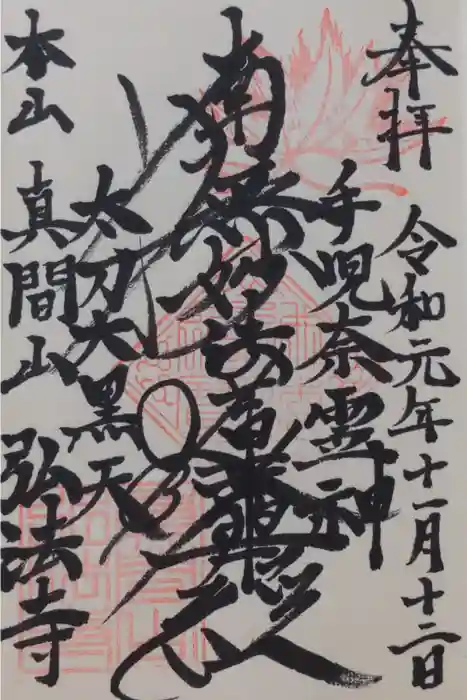 奉拝
令和元年十一月十二日
手児奈霊神
南無妙法蓮華経
太刀大黒天
本山
真間山
弘法寺